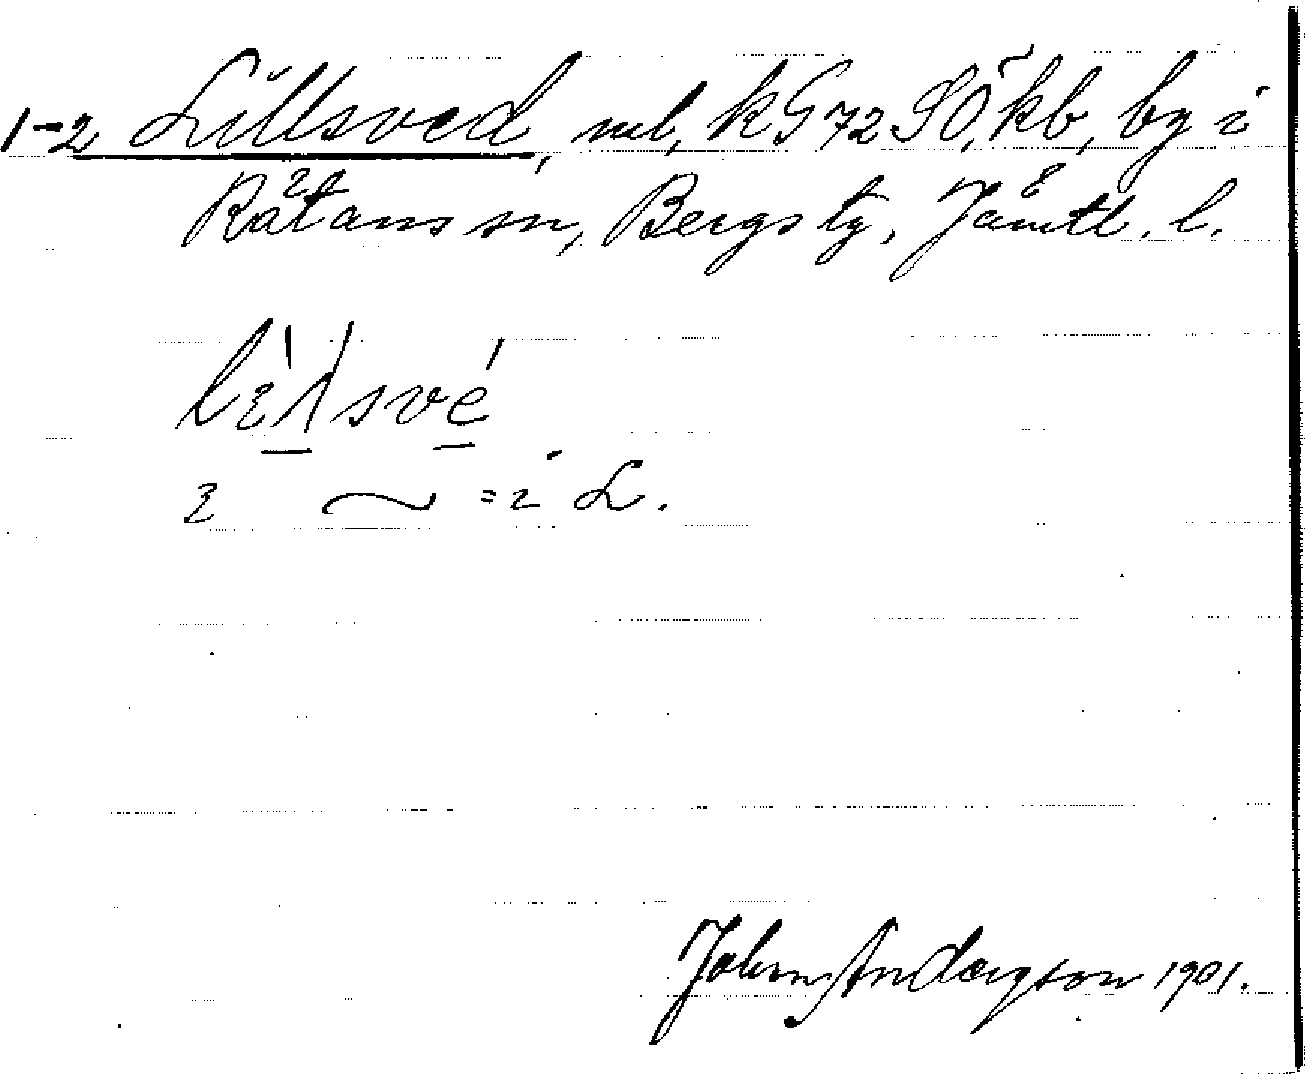 1-2 Lillsved, ml, kG 72 SO, kb, by i
Rätans sn, Bergs tg, Jämtl. l.
= i L.
John Anderzson 1901.